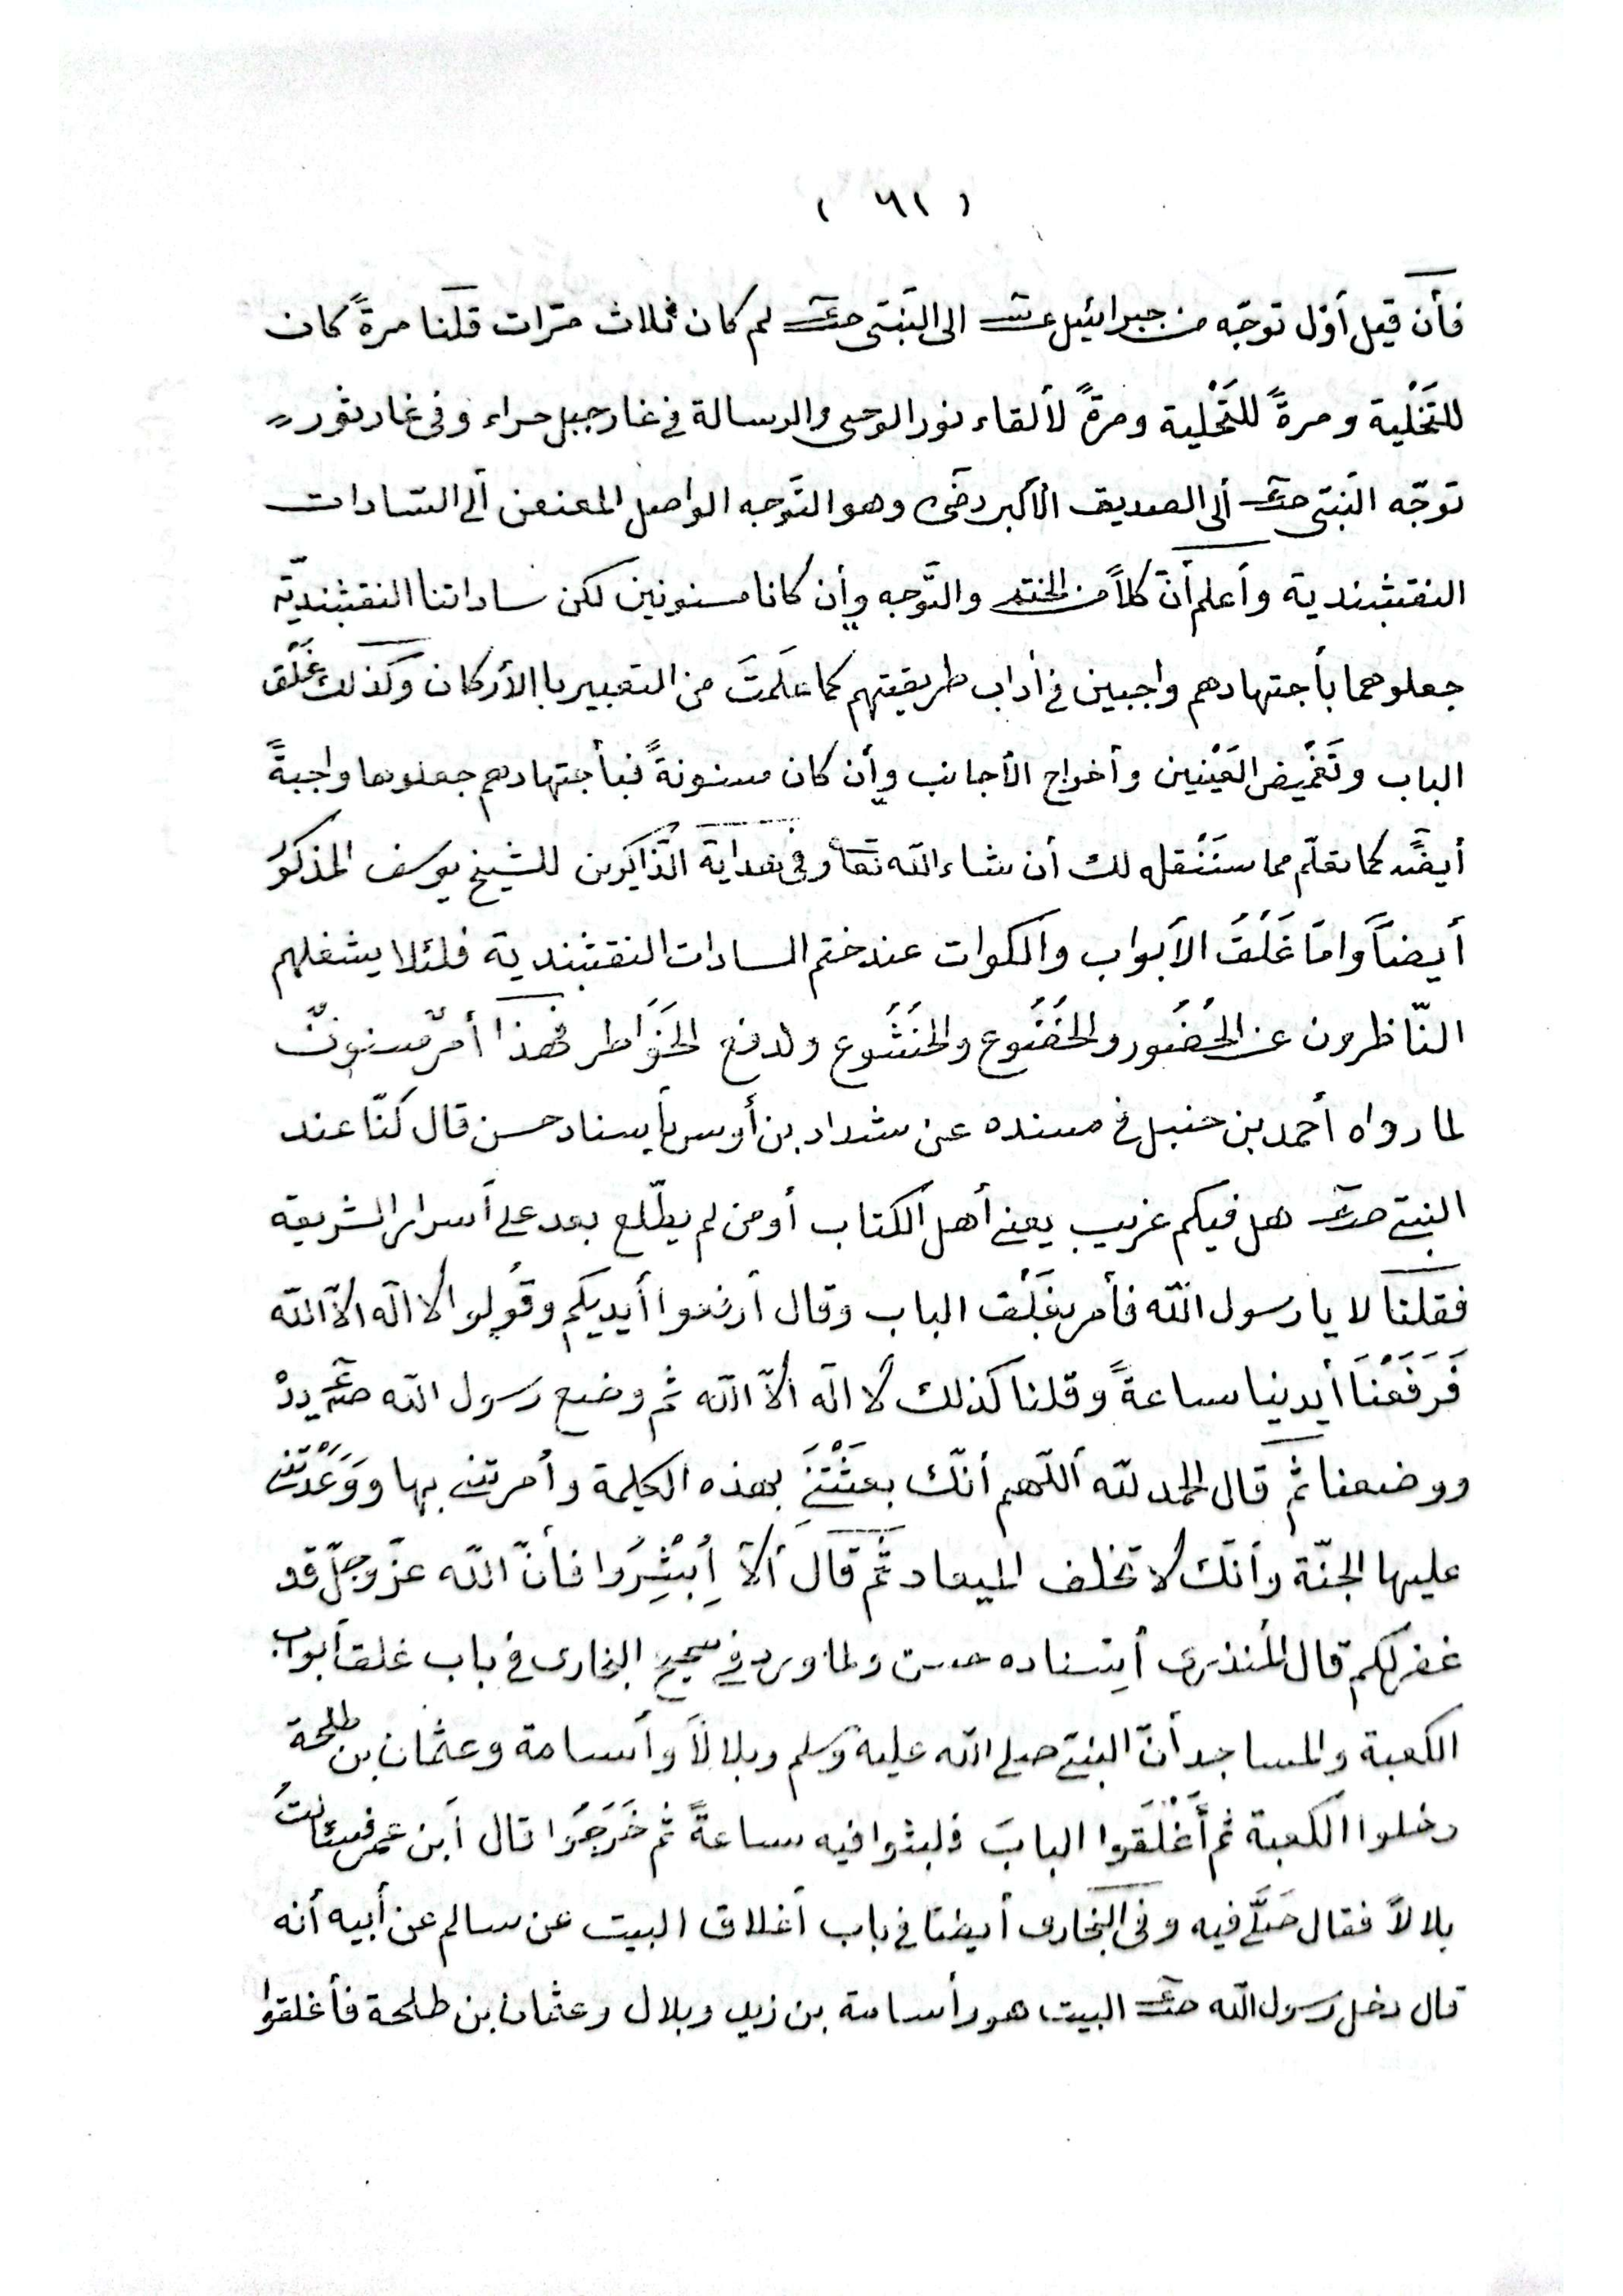 ( ٦١ )
فأن قيل أوّل توجّه من جبرائيل عـم الى النّبىّ صلعم لم كان ثلاث مرّات قلنا مرةً كان
للتَخْلية ومرةً للتَحْلية ومرةً لألقاء نور الوحى والرسالة فى غار جبل حراء وفى غار ثور
توجّه النّبىّ صلعم ألى الصديق الأكبر رضى وهو التَوجه الواصل المعنعن ألى السّادات
النقشبندية وأعلم أنّ كلاً من الختم والتّوجه وأن كانا مسنونين لكن ساداتنا النقشبنديّة
جعلوهما بأجتهادهم واجبين فى أداب طريقتهم كما علمتَ من التعبير با الأركان وكذلك غَلْق
الباب وتَغْميض العَيْنين وأخراج الأجانب وأن كان مسنونةً فبأجتهادهم جعلوها واجبةً
أيضًا كما تعلّم مما سَنَنْقله لك أن شاء الله تعا وفى هداية الذّاكرين للشيخ يوسف المذكور
أيضاً وامّا غَلْقُ الأبواب والكوات عند ختم السادات النقشبندية فلئلا يشغلهم
النّاظرون عن الحُضُور والخُضُوع والخُشُوع ولدفع الخَوَاطر فهذا أمرٌ مسنونٌ
لما رواه أحمد بن حنبل فى مسنده عن شداد بن أوس بأسناد حسن قال كنّا عند
النبىّ صلعم هل فيكم غريب يعنى أهل الكتاب أو من لم يطّلع بعد على أسرار الشريعة
فقلنا لا يا رسول الله فأمر بغَلْق الباب وقال أرفعوا أيديكم وقُولوا لا اله الاّ الله
فَرَفَعْنَا أيدينا ساعةً وقلنا كذلك لا اله الاّ الله ثم وضع رسول الله صلعم يدهُ
ووضعنا ثمّ قال الحمد للّه أللّهم أنّك بعثْتَنِى بهذه الكلمة وأمرتنى بها ووَعَدْتَنى
عليها الجنّة وأنّك لا تخلف الميعاد ثمّ قال ألاَ أَبْشِرُوا فأنّ الله عزّ وجلّ قد
غفر لكم قال المُنذرى أِسناده حسن ولما ورد فى صحيح البخارى فى باب غلق أبواب
الكعبة والمساجد أنّ النبىّ صلى الله عليه وسلم وبلالاً وأسامة وعثمان بن طلحة
دخلوا الكعبة ثم أَغْلَقوا البابَ فلبثوا فيه ساعةً ثم خَرَجُوا قال أبن عمر فسئلتُ
بلالاً فقال صَلَّى فيه وفى البخارى أيضًا فى باب أغلاق البيت عن سالم عن أبيه أنه
قال دخل رسول الله صلعم البيت هو وأسامة بن زيد وبلال وعثمان بن طلحة فأغلقوا